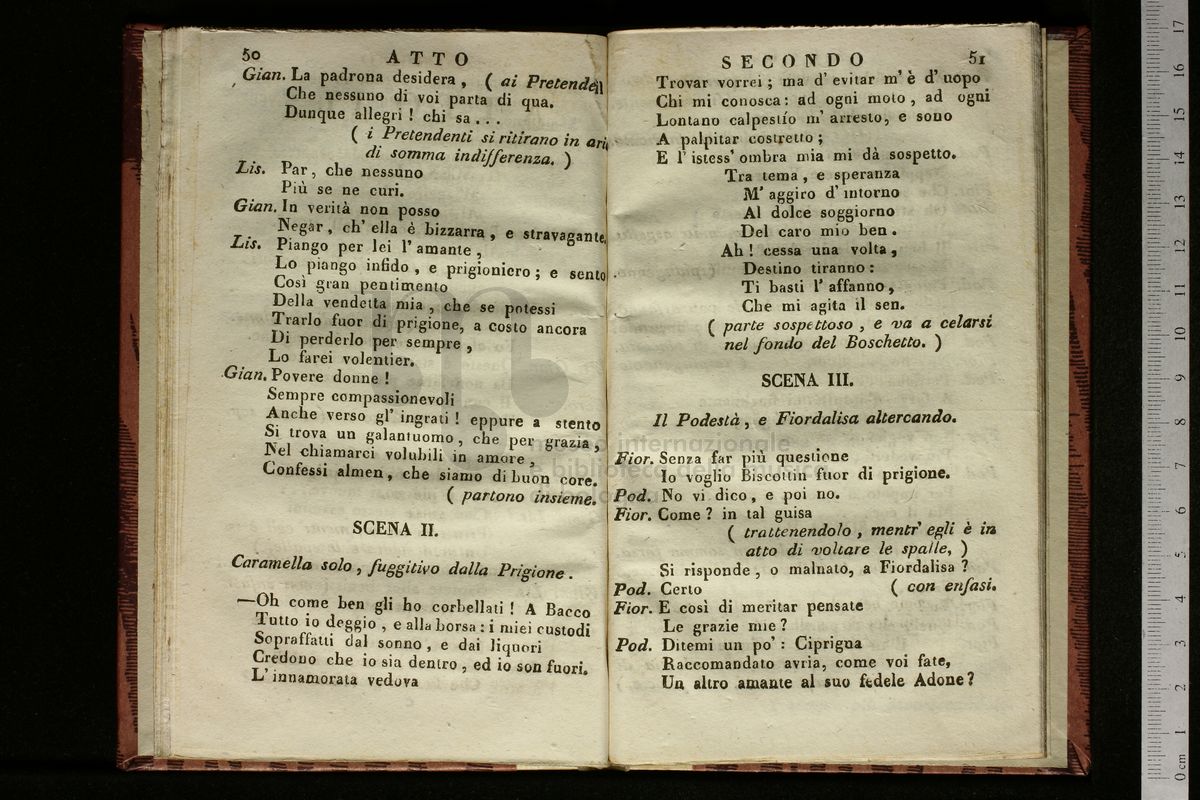 50 ATTO
Gian. La padrona desidera, ( ai Pretendent
Che nessuno di voi parta di qua.
Dunque allegri! chi sa...
( i Pretendenti si ritirano in aria
di somma indifferenza. )
Lis. Par, che nessuno
Più se ne curi.
Gian. In verità non posso
Negar, ch' ella è bizzarra, e stravagante.
Lis. Piango per lei l' amante,
Lo piango infido, e prigioniero; e sento
Così gran pentimento
Della vendetta mia, che se potessi
Trarlo fuor di prigione, a costo ancora
Di perderlo per sempre,
Lo farei volentier.
Gian. Povere donne!
Sempre compassionevoli
Anche verso gl' ingrati! eppure a stento
Si trova un galantuomo, che per grazia,
Nel chiamarci volubili in amore,
Confessi almen, che siamo di buon core.
( partono insieme.
SCENA II.
Caramella solo, fuggitivo dalla Prigione.
—Oh come ben gli ho corbellati! A Bacco
Tutto io deggio, e alla borsa: i miei custodi
Sopraffatti dal sonno, e dai liquori
Credono che io sia dentro, ed io son fuori.
L' innamorata vedova
SECONDO 51
Trovar vorrei; ma d' evitar m' è d' uopo
Chi mi conosca: ad ogni moto, ad ogni
Lontano calpestío m' arresto, e sono
A palpitar costretto;
E l' istess' ombra mia mi dà sospetto.
Tra tema, e speranza
M' aggiro d' intorno
Al dolce soggiorno
Del caro mio ben.
Ah! cessa una volta,
Destino tiranno:
Ti basti l' affanno,
Che mi agita il sen.
( parte sospettoso, e va a celarsi
nel fondo del Boschetto. )
SCENA III.
Il Podestà, e Fiordalisa altercando.
Fior. Senza far più questione
Io voglio Biscottin fuor di prigione.
Pod. No vi dico, e poi no.
Fior. Come? in tal guisa
( trattenendolo, mentr' egli è in
atto di voltare le spalle, )
Si risponde, o malnato, a Fiordalisa?
Pod. Certo ( con enfasi.
Fior. E così di meritar pensate
Le grazie mie?
Pod. Ditemi un po': Ciprigna
Raccomandato avria, come voi fate,
Un altro amante al suo fedele Adone?
museo internazionale
e biblioteca della musica
0 cm 1 2 3 4 5 6 7 8 9 10 11 12 13 14 15 16 17